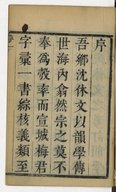 序
吾鄉沈休文以韻學傳
世海內翕然宗之莫不
奉為彀率而宣城梅君
字彙一書綜核義類至